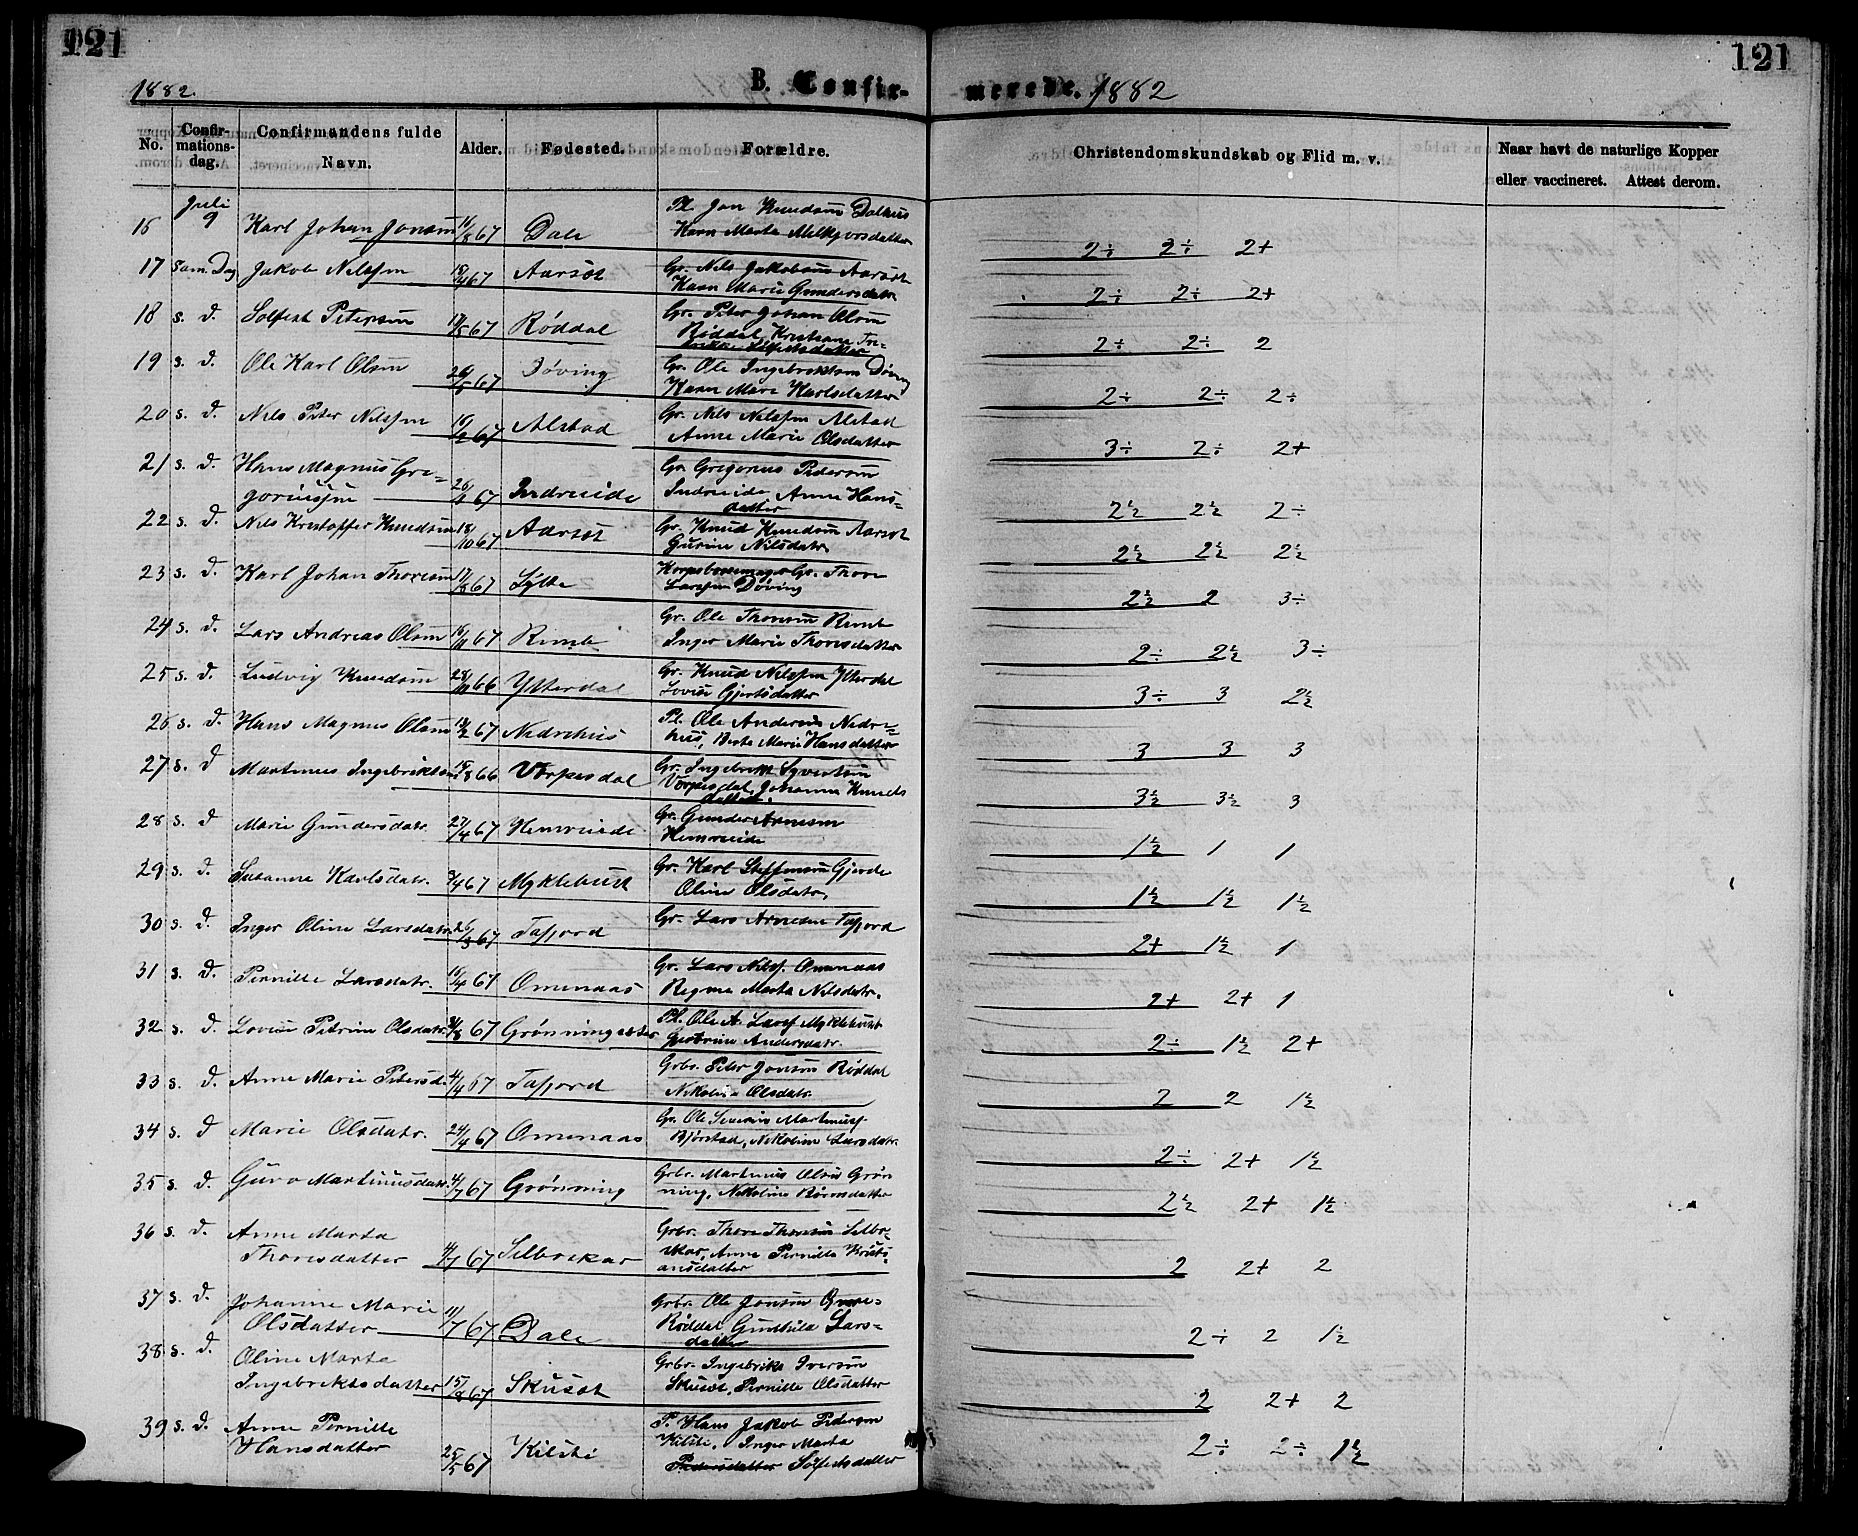 121
121
1882.
B. Confir-
merede. 1882
No.
Confir-
mations-
dag.
Confirmandens fulde
Navn.
Alder.
Fødested.
Forældre.
Christendomskundskab og Flid m. v.
Naar havt de naturlige Kopper
eller vaccineret. Attest derom.
Juli
9
Pl. Jon Knudsøn Dalhus
16 Karl Johan Jonsøn 67 Dale Karn Marta Melkjorsdatter 2÷ 2÷ 2+
17 Sam. Dag Jakob Nilssøn 67 Aarset Gr. Nils Jakobsøn Aarset
Karn Marie Gundersdatr. 2÷ 2÷ 2+
18 s. d. Solfest Petersøn 67 Røddal Gr. Peter Johan Olsøn
Røddal, Kristiane
Solfestsdatter 2÷ 2÷ 2
19 s. d. Ole Karl Olsøn 67 Døving Gr. Ole Ingebriktsøn Døving
Karn Mari Karlsdatter 2÷ 2÷ 2÷
20 s. d. Nils Peter Nilssøn 67 Alstad Gr. Nils Nilssøn Alstad
Anne Marie Olsdatter 3÷ 2÷ 2+
21 s. d. Hans Magnus Gre=
goriussøn 67 Indreeide Gr. Gregorius Pedersøn
Indreeide, Anne Hans=
datter 2½ 2½ 2÷
22 s. d. Nils Kristoffer Knudsøn 18/10 67 Aarset Gr. Knud Knudsøn Aarset
Gurine Nilsdatr. 2½ 2½ 2½
23 s. d. Karl Johan Thoresøn 67 Sylte Gr. Thore
Larssøn Døving 2½ 2 3÷
24 s. d. Lars Andreas Olsøn 67 Remb Gr. Ole Thoresøn Remb
Inger Marie Thoresdatter 2÷ 2½ 3÷
25 s. d. Ludvig Knudsøn 66 Ytterdal Gr. Knud Nilssøn Ytterdal
Lovise Gjertsdatter 3÷ 3 2½
26 s. d. Hans Magnus Olsøn 67 Nedrehus Pl. Ole Andersøn Nedre=
hus, Berte Marie Hansdatter 3 3 3
27 s. d. Martinus Ingebriktsøn 66 Vørpesdal Gr. Ingebrikt Syvertsøn
Vørpesdal, Johanna Knuds
datter. 3½ 3½ 3
28 s. d. Marie Gundersdatr. 27/4 67 Hemreeide Gr. Gunder Arnesøn
Hemreeide 1½ 1 1
29 s. d. Susanne Karlsdatr. 67 Myklebust Gr. Karl Steffensøn Gjerde
Oline Olsdatr. 1½ 1½ 1½
30 s. d. Inger Oline Larsdatr. 67 Tafjord Gr. Lars Arnesen Tafjord
2+ 1½ 1
31 s. d. Pernille Larsdatr. 16/4 67 Omenaas Gr. Lars Nilss. Omenaas
Regine Marta Nilsdatr. 2+ 2+ 1
32 s. d. Lovise Petrine Olsdatr. 67 Grønningsæter Pl. Ole A. Larss Myklebust
Andersdatr. 2÷ 1½ 2+
33 s. d. Anne Marie Petersd. 4/4 67 Tafjord Grbr. Peter Jonsøn Røddal
Nikoline Olsdatr. 2 2 1½
34 s. d. Marie Olsdatr. 24/4 67 Omenaas Gr. Ole Severin Martinuss.
Bjørstad, Nikoline Larsdatr. 2÷ 2+ 1½
35 s. d. Guro Martinusdatr. 4/7 67 Grønning Grbr. Martinus Olsøn Grøn
ning, Nikoline Bjørnsdatter 2½ 2+ 1½
36 s. d. Anne Marta
Thoresdatter 67 Selboskar Grbr. Thore Thoresøn Selbo=
skar, Anne Pernille Kristi
ansdatter 2 2+ 2
37 s. d. Johanne Marie
Olsdatter 11/7 67 Dale Grbr. Ole Jonsøn Øvre=
Røddal, Gunhild Lars=
datter 2÷ 2 1½
38 s. d. Oline Marta
Ingebriktsdatter 15/8 67 Skuset Grbr. Ingebrikt Iversøn
Skuset, Pernille Olsdatter 2 2+ 2
39 s. d. Anne Pernille
Hansdatter 25/5 67 Kilsti P. Hans Jakob Pedersøn
Kilsti, Inger Marta
Pedersdatter Solfestsdatter 2÷ 2÷ 1½